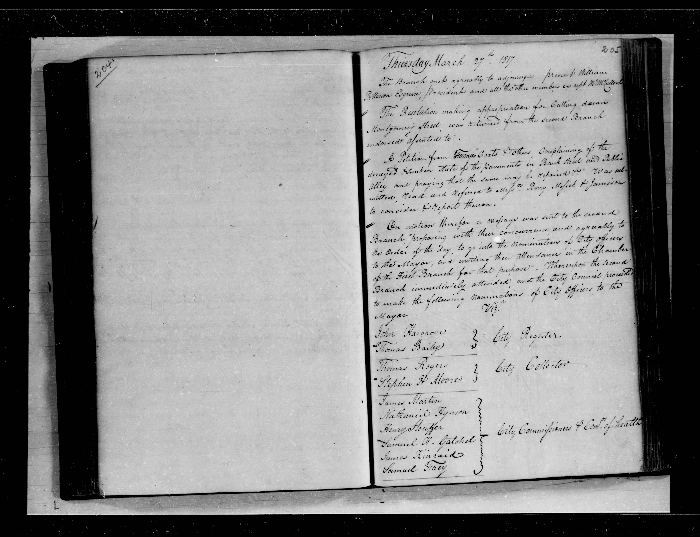 204
205
Thursday March 27th 1817
The Branch met agreeably to adjournm. present William
Patterson Esquire, President and all the other members except
The Resolution making appropriation for Cutting down
Montgomery Street, was returned from the second Branch
endorsed "assented to".
A Petition from Thomas & others, Complaining of the
state of the pavements in Bank Street and Public
alley, and praying that the same may be repaired was
Read and referred to Messrs. & Jamison
to consider & Report thereon.
On motion therefor a message was sent to the second
Branch "proposing with their concurrence and agreeably to
the Order of the Day, to go into the nominations of City officers
to the Mayor, and inviting their attendance in the Chamber
of the First Branch for that purpose". Whereupon the second
Branch immediately attended and the City Council proceeded
to make the following nominations of City Officers to the
Mayor Viz.
John Hargrove
Thomas Bailey } City Register.
Thomas Rogers
Stephen H Moore } City Collector
James Martin
Nathaniel Hynson
Henry Stouffer
Samuel
James Kincaid
Samuel Frey } City Commissioners & Com. of health